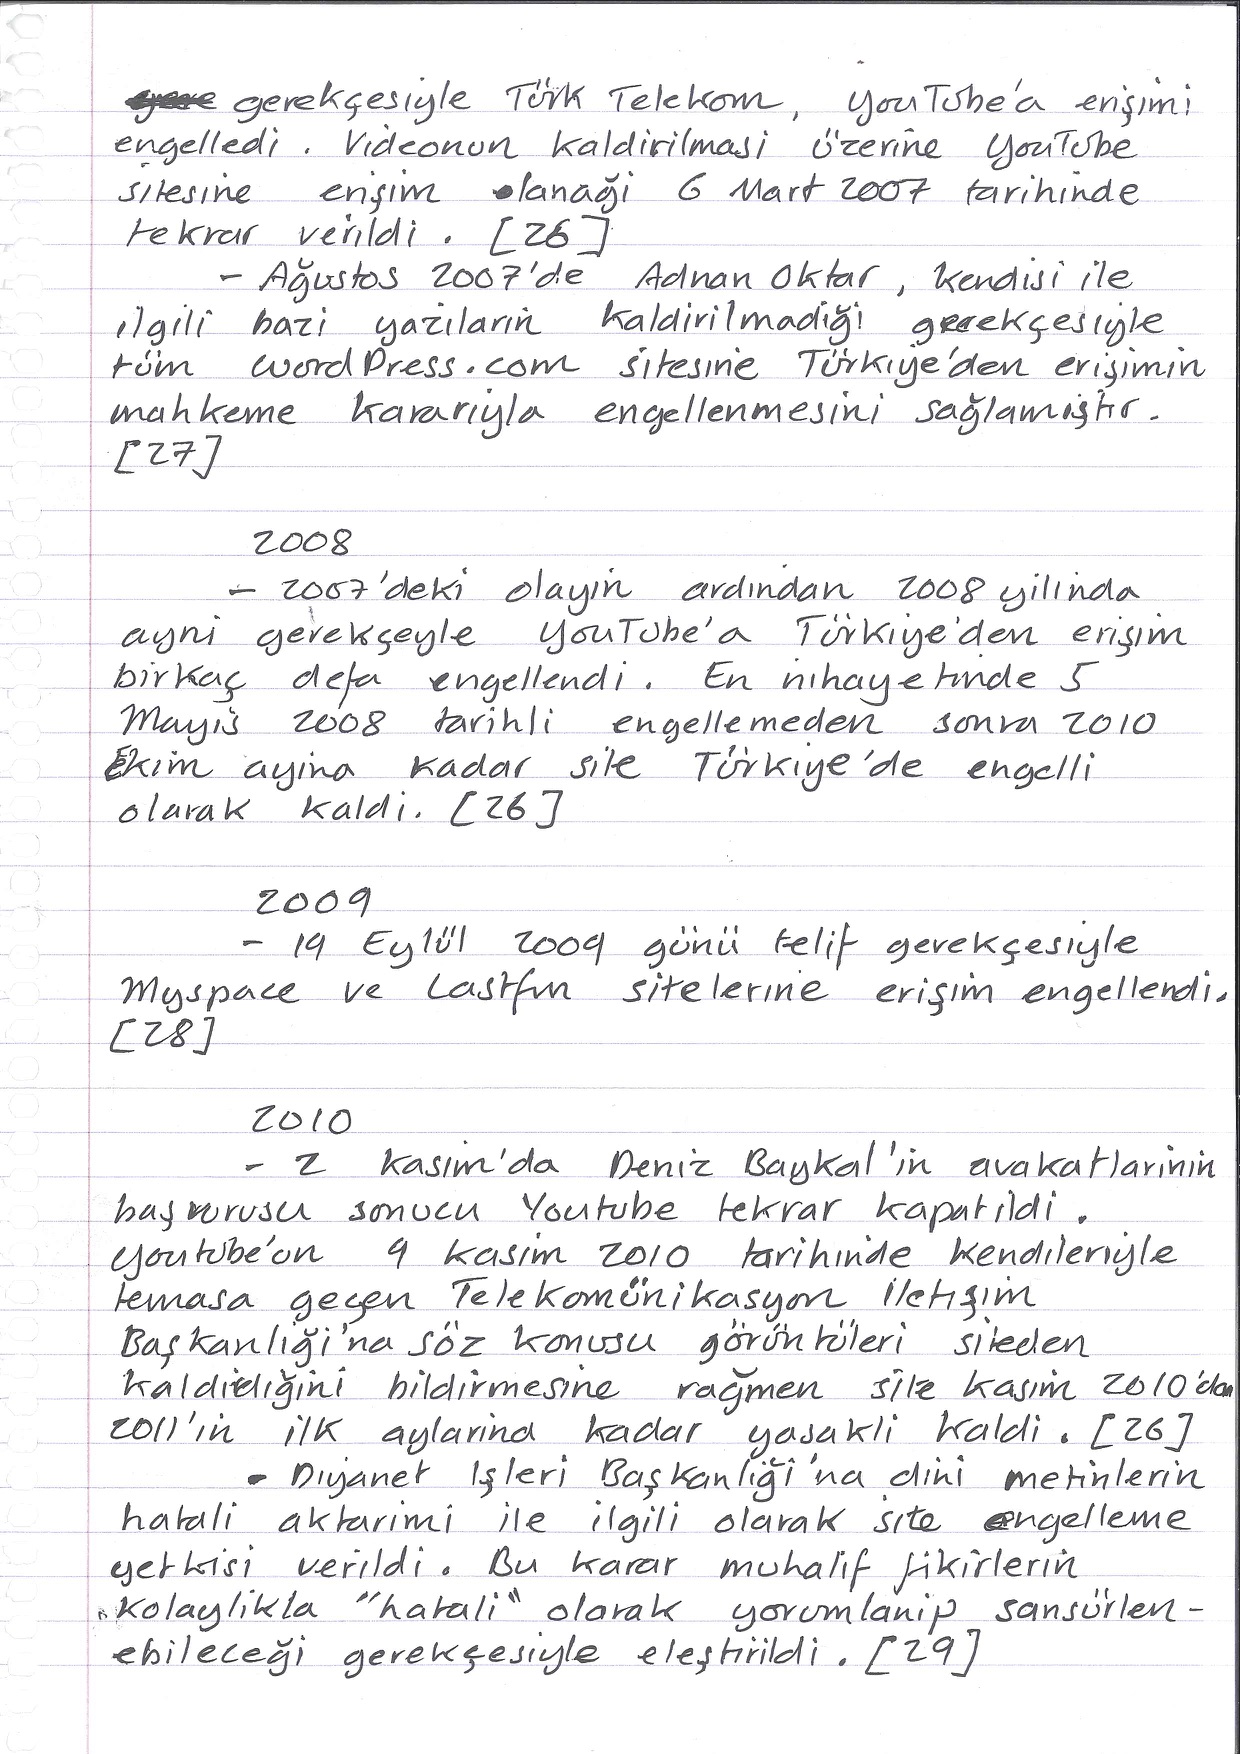 gerekçesiyle Türk Telekom, YouTube'a erişimi
engelledi. Videonun kaldirilmasi üzerine YouTube
sitesine erişim olanaği 6 Mart 2007 tarihinde
tekrar verildi. [26]
- Ağustos 2007'de Adnan Oktar, kendisi ile
ilgili bazi yazilarin kaldirilmadiği gerekçesiyle
tüm WordPress.com sitesine Türkiye'den erişimin
mahkeme karariyla engellenmesini sağlamiştir.
[27]
2008
- 2007'deki olayin ardindan 2008 yilinda
ayni gerekçeyle YouTube'a Türkiye'den erişim
birkaç defa engellendi. En nihayetinde 5
Mayis 2008 tarihli engellemeden sonra 2010
Ekim ayina kadar site Türkiye'de engelli
olarak kaldi. [26]
2009
- 19 Eylül 2009 günü telif gerekçesiyle
Myspace ve Lastfm sitelerine erişim engellendi.
[28]
2010
- 2 Kasim'da Deniz Baykal'in avakatlarinin
başvurusu sonucu Youtube tekrar kapatildi.
Youtube'un 9 Kasim 2010 tarihinde kendileriyle
temasa geçen Telekomünikasyon İletişim
Başkanliği'na söz konusu görüntüleri siteden
kaldirdiğini bildirmesine rağmen site Kasim 2010'dan
2011'in ilk aylarina kadar yasakli kaldi. [26]
- Diyanet Işleri Başkanliği'na dini metinlerin
hatali aktarimi ile ilgili olarak site engelleme
yetkisi verildi. Bu karar muhalif fikirlerin
kolaylikla "hatali" olarak yorumlanip sansürlen-
ebileceği gerekçesiyle eleştirildi. [29]